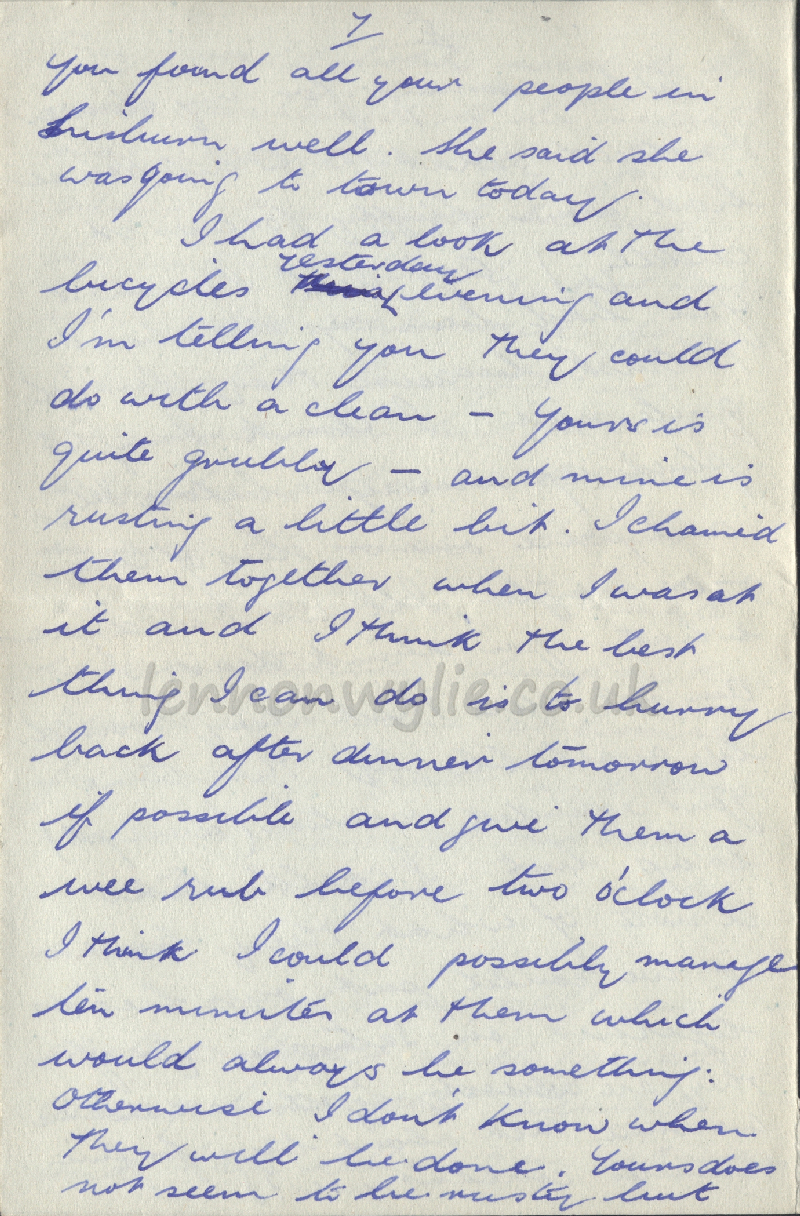 7
you found all your people in
Lisburn well. She said she
was going to town today.
I had a look at the
yesterday
bicycles evening and
I'm telling you they could
do with a clean – Yours is
quite grubby – and mine is
rusting a little bit. I chained
them together when I was at
it and I think the best
thing I can do is to hurry
lennonwylie.co.uk
back after dinner tomorrow
if possible and give them a
wee rub before two o'clock
I think I could possibly manage
ten minutes at them which
would always be something.
Otherwise I don't know when
they will be done. Yours does
not seem to be rusty but